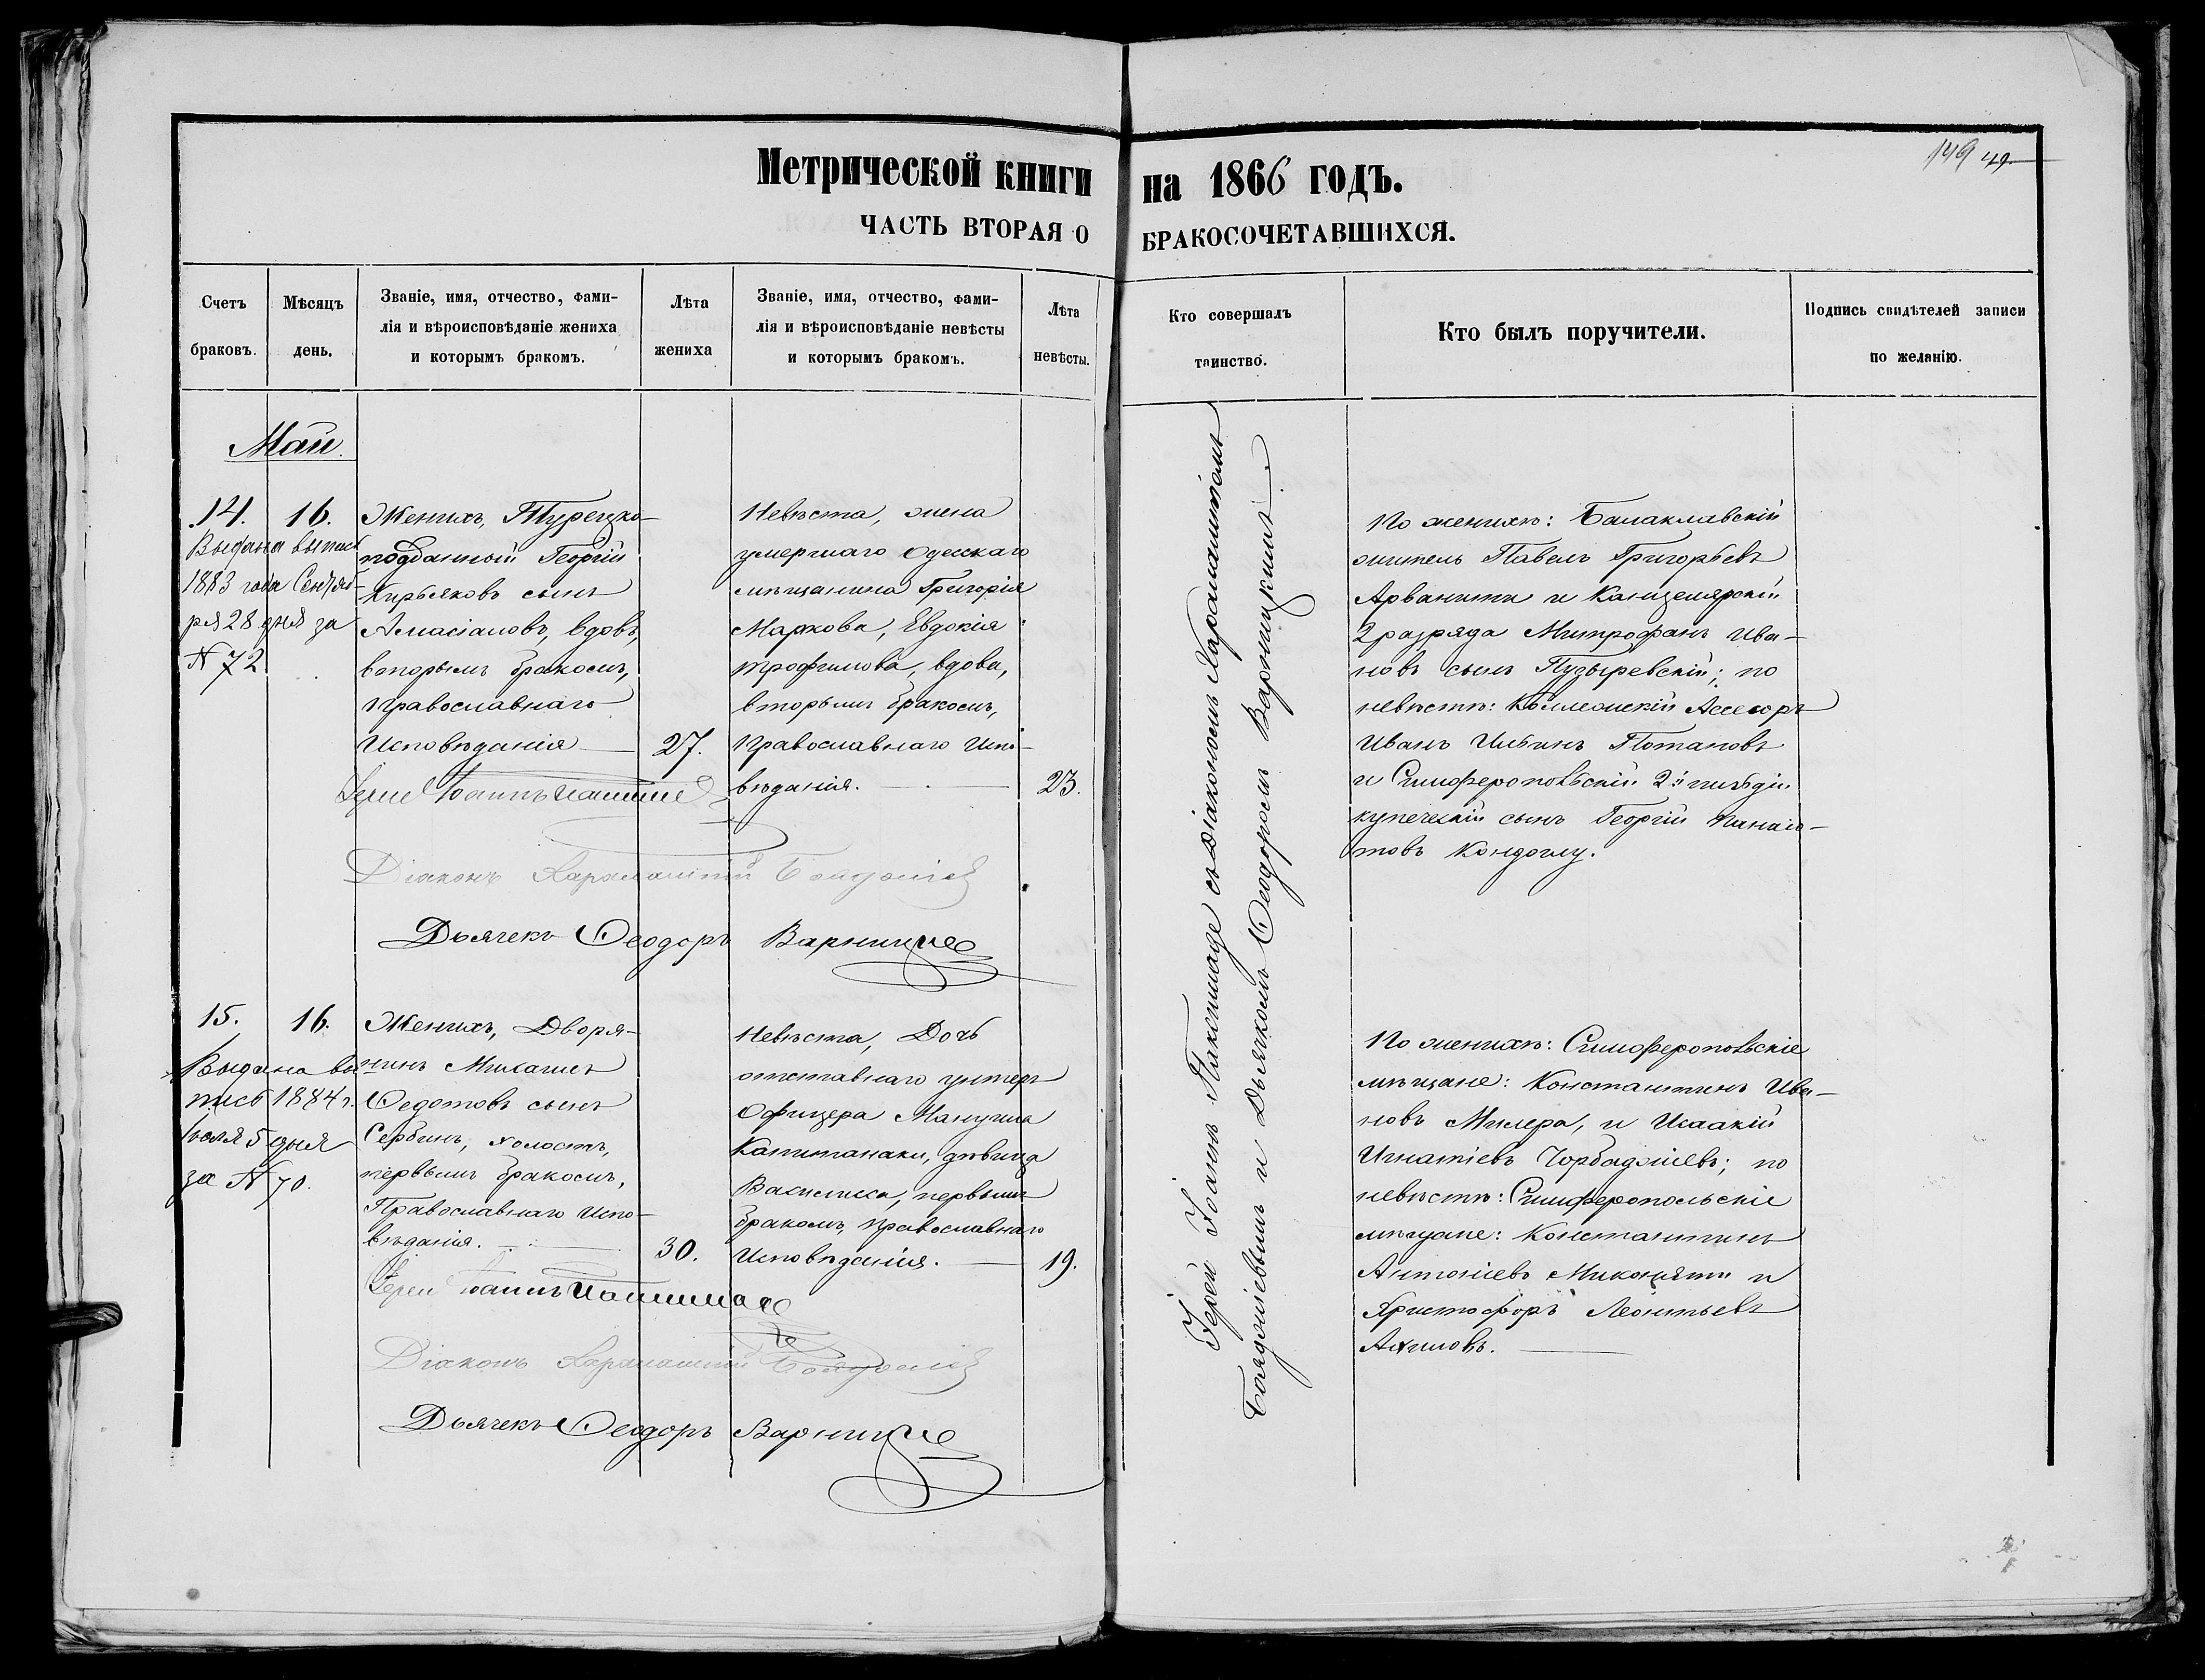 149 49
Метрической книги на 1866 годъ.
ЧАСТЬ ВТОРАЯ О БРАКОСОЧЕТАВШИХСЯ.
Счетъ
браковъ.
Мѣсяцъ
день.
Званіе, имя, отчество, фами-
лія и вѣроисповѣданіе жениха
и которымъ бракомъ.
Лѣта
жениха
Званіе, имя, отчество, фами-
лія и вѣроисповѣданіе невѣсты
и которымъ бракомъ.
Лѣта
невѣсты.
Кто совершалъ
таинство.
Кто былъ поручители.
Подпись свидѣтелей записи
по желанію.
Май.
14.
16.
Выдана выпись
1883 года Сентяб-
ря 28 дня за
N 72
Женихъ, Турецко-
подданной Георгій
Кирьяковъ сынъ
вдовъ,
вторымъ бракомъ,
православнаго
Исповѣданія
27.
Невѣста, жена
умершаго Одесскаго
мѣщанина Григорія
Маркова, Евдокія
Трофимова, вдова,
вторымъ бракомъ,
православнаго Испо-
вѣданія.
23.
Іерей Іоаннъ
Діаконъ Харалампій
Дьячекъ Ѳеодоръ Варницкій
Іерей Іоаннъ съ Діакономъ Харалампіемъ
и Дьячкомъ Ѳеодоромъ Варницкимъ.
По женихѣ: Балаклавскій
житель Павелъ Григорьевъ
Арванити и Канцелярскій
2 разряда Митрофанъ Ива-
новъ сынъ Пузыревскій; по
невѣстѣ: Коллежскій Асесоръ
Иванъ Ильинъ Потаповъ
и Симферопольскій 2й гильдіи
купеческій сынъ Георгій Панаіо-
товъ Кондоглу.
15.
16.
Выдана вы
пись 1884 г.
Іюля 5 дня
за N 70.
Женихъ, Дворя-
нинъ Михаилъ
Ѳедотовъ сынъ
Сербинъ, холостъ,
первымъ бракомъ,
Православнаго Испо-
вѣданія.
30.
Невѣста, Дочь
отставнаго унтеръ
Офицера Мануила
Капитанаки, дѣвица
Василиса, первымъ
бракомъ, православнаго
Исповѣданія.
19.
Іерей Іоаннъ
Діаконъ Харалампій
Дьячекъ Ѳеодоръ Варницкій
По женихѣ: Симферопольскіе
мѣщане: Константинъ Ива-
новъ Милера, и Исаакій
Игнатіевъ Чорбаджіевъ; по
невѣстѣ: Симферопольскіе
мѣщане: Константинъ
Антоніевъ и
Христофоръ Леонтьевъ
Ахиловъ.